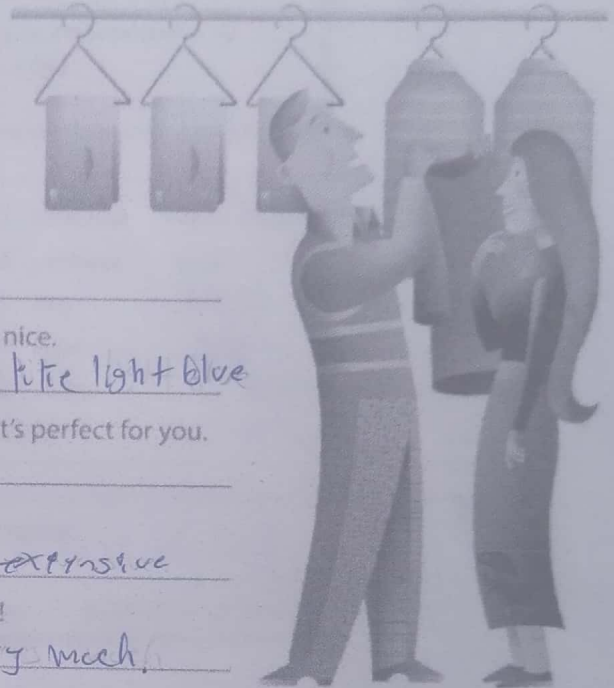 nice.
like light blue
t's perfect for you.
!
y much.